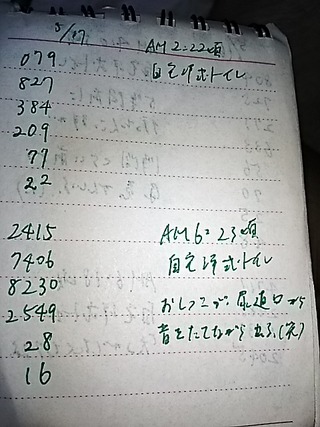 5/17
AM 2:22頃
079
自宅洋式トイレ
827
384
209
77
22
2415
AM 6:23頃
7406
自宅洋式トイレ
8230
おしっこが、尿道口から
2549
音をたてながら出る(笑)
28
16